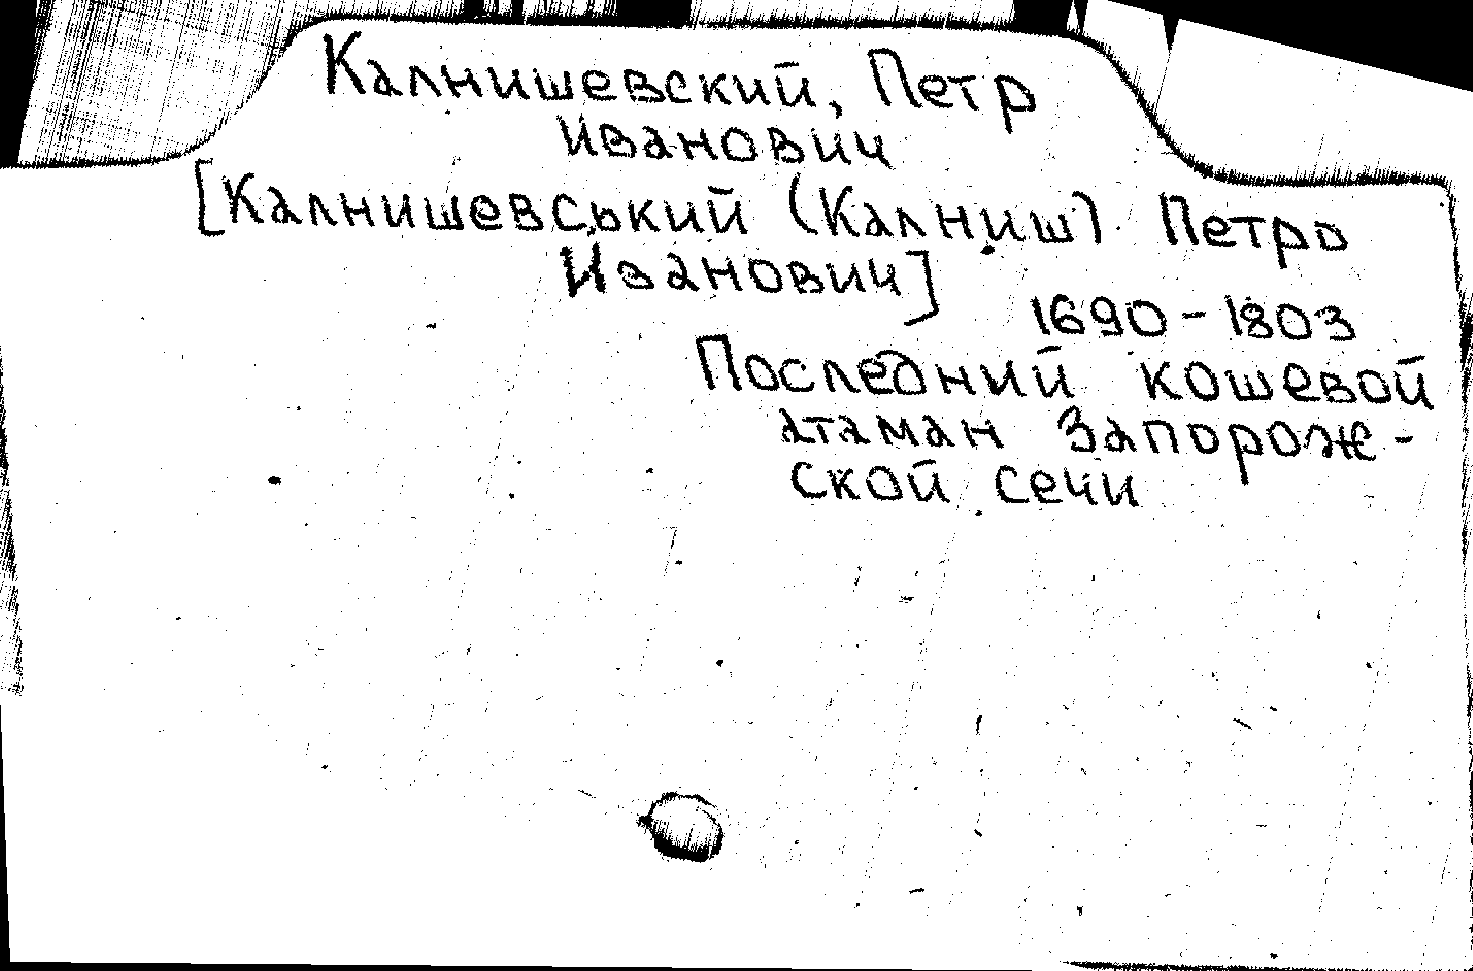 Калнишевский, Петр
Иванович
[Калнишевський (Калниш) Петро
Иванович]
1690-1803
Последний кошевой
атаман Запорож-
ской сечи